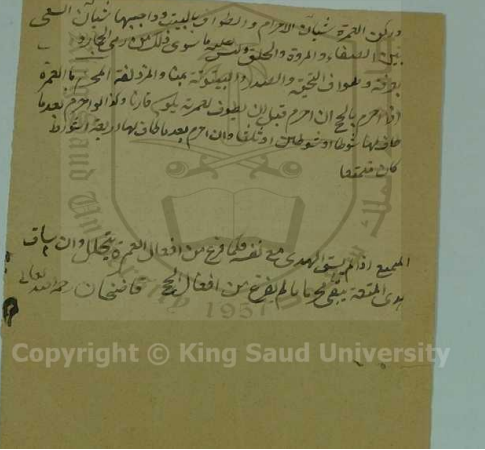 وركن العمرة شيئان الاحرام والطواف بالبيت وواجبها شيئان السعي
بين الصفاء والمروة والحلق وليس عليه ما سوى ذلك من رمي الجمار و
بعرفة وطواف التحية والصدر والبيتوتة بمنا والمزدلفة المحرم بالعمرة
اذا احرم بالحج ان احرم قبل ان يطوف لعمرته يكون قارنا وكذا لو احرم بعد ما
طاف لها شوطا او شوطين او ثلثا وان احرم بعد ما طاف لها اربعة اشواط
كان متمتعا
المتمتع اذا لم يسق الهدى مع نفسه فكما فرغ من افعال العمرة يتحلل وان ساق
هدى المتعة يبقى محرما ما لم يفرغ من افعال الحج قاضيخان رحمه الله تعالى
Copyright © King Saud University
1957